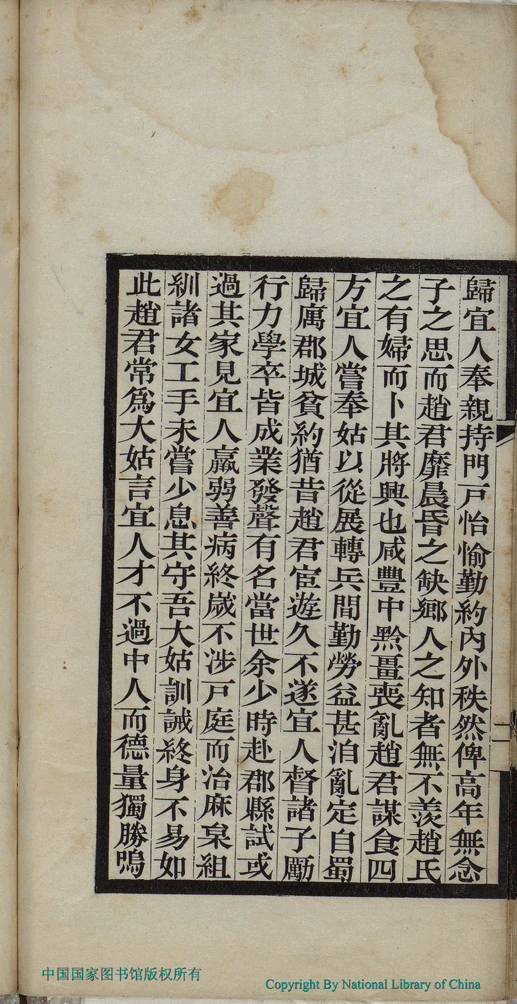 歸宜人奉親持門戸怡愉勤約內外秩然俾高年無念
子之思而趙君靡晨昏之缺鄉人之知者無不羨趙氏
之有婦而卜其將興也咸豐中黔畺喪亂趙君謀食四
方宜人嘗奉姑以從展轉兵間勤勞益甚洎亂定自蜀
歸寓郡城貧約猶昔趙君宦遊久不遂宜人督諸子勵
行力學卒皆成業發聲有名當世余少時赴郡縣試或
過其家見宜人羸弱善病終歲不涉戸庭而治麻枲組
紃諸女工手未嘗少息其守吾大姑訓誡終身不易如
此趙君常爲大姑言宜人才不過中人而德量獨勝嗚
二
中国国家图书馆版权所有
Copyright By National Library of China